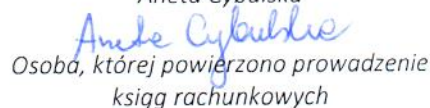 Aneta Cybulska
Aneta Cybulska
Osoba, której powierzono prowadzenie
ksiąg rachunkowych